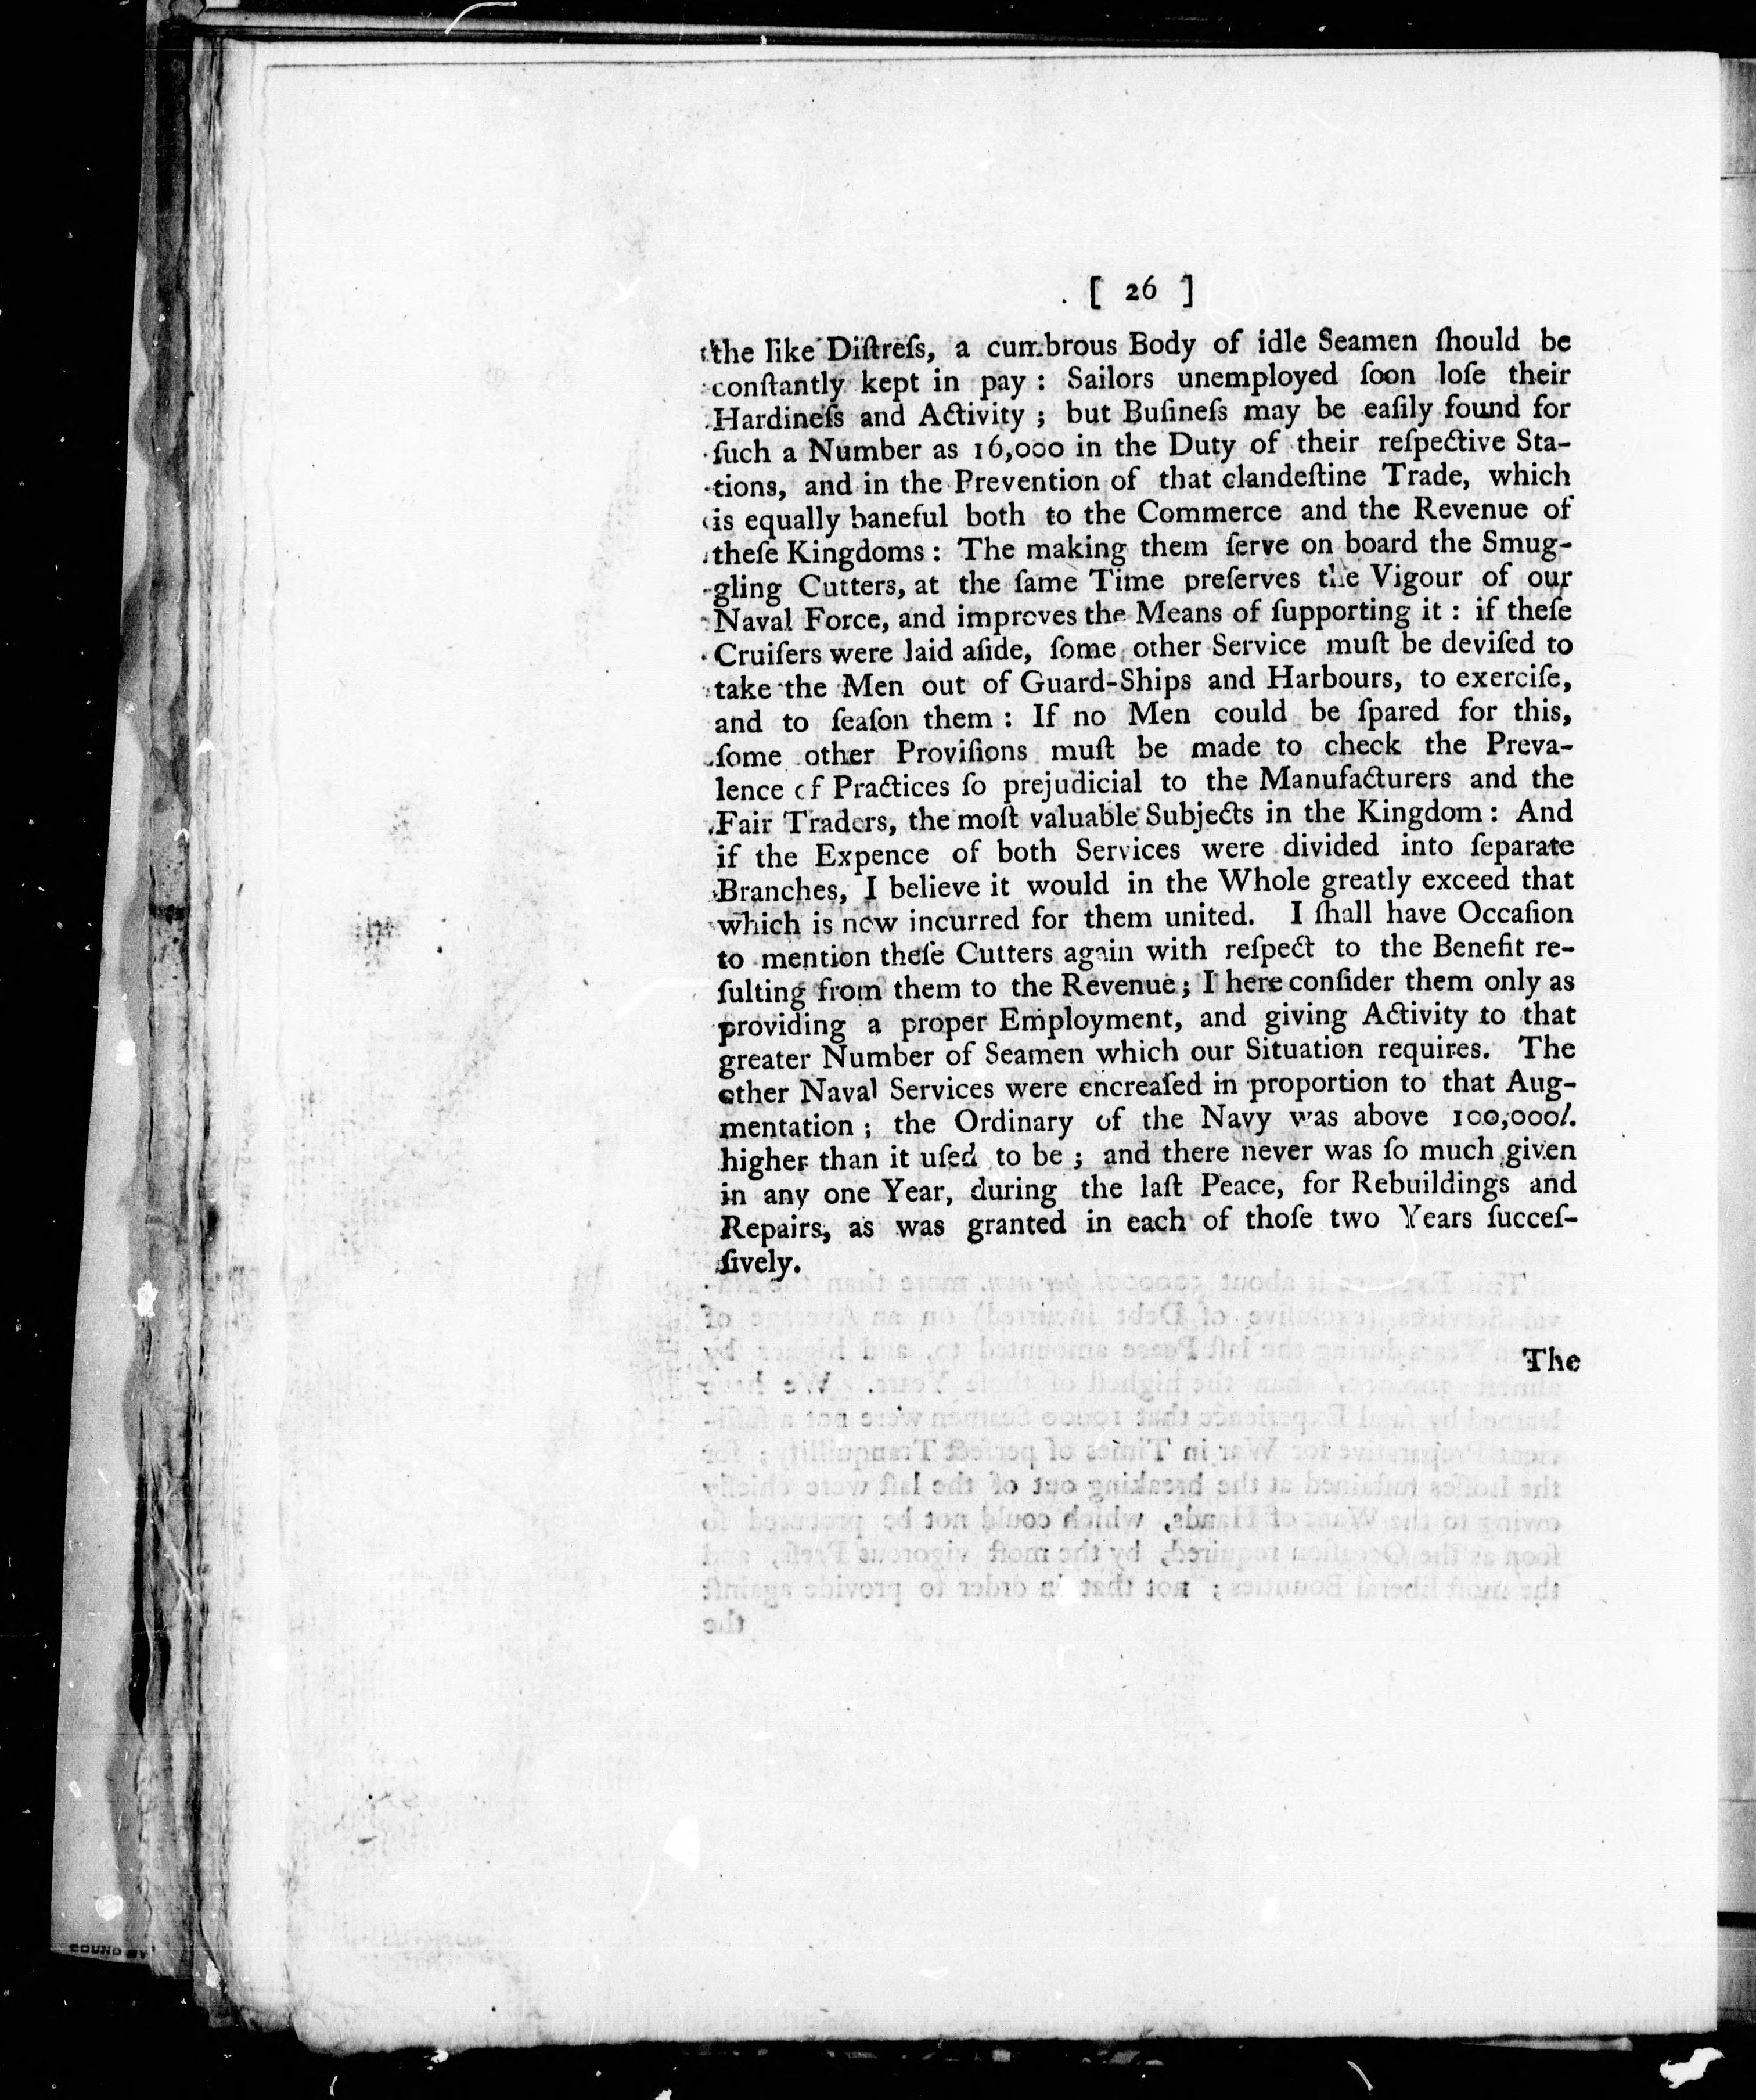 [ 26 ]
the like Diſtreſs, a cumbrous Body of idle Seamen ſhould be
conſtantly kept in pay : Sailors unemployed ſoon loſe their
Hardineſs and Activity ; but Buſineſs may be eaſily found for
ſuch a Number as 16,000 in the Duty of their reſpective Sta-
tions, and in the Prevention of that clandeſtine Trade, which
is equally baneful both to the Commerce and the Revenue of
theſe Kingdoms : The making them ſerve on board the Smug-
gling Cutters, at the ſame Time preſerves the Vigour of our
Naval Force, and improves the Means of ſupporting it : if theſe
Cruiſers were laid aſide, ſome other Service muſt be deviſed to
take the Men out of Guard-Ships and Harbours, to exerciſe,
and to ſeaſon them : If no Men could be ſpared for this,
ſome other Proviſions muſt be made to check the Preva-
lence of Practices ſo prejudicial to the Manufacturers and the
Fair Traders, the moſt valuable Subjects in the Kingdom : And
if the Expence of both Services were divided into ſeparate
Branches, I believe it would in the Whole greatly exceed that
which is now incurred for them united. I ſhall have Occaſion
to mention theſe Cutters again with reſpect to the Benefit re-
ſulting from them to the Revenue ; I here conſider them only as
providing a proper Employment, and giving Activity to that
greater Number of Seamen which our Situation requires. The
other Naval Services were encreaſed in proportion to that Aug-
mentation ; the Ordinary of the Navy was above 100,000l.
higher than it uſed to be ; and there never was ſo much given
in any one Year, during the laſt Peace, for Rebuildings and
Repairs, as was granted in each of thoſe two Years ſucceſ-
ſively.
The
BOUND BY